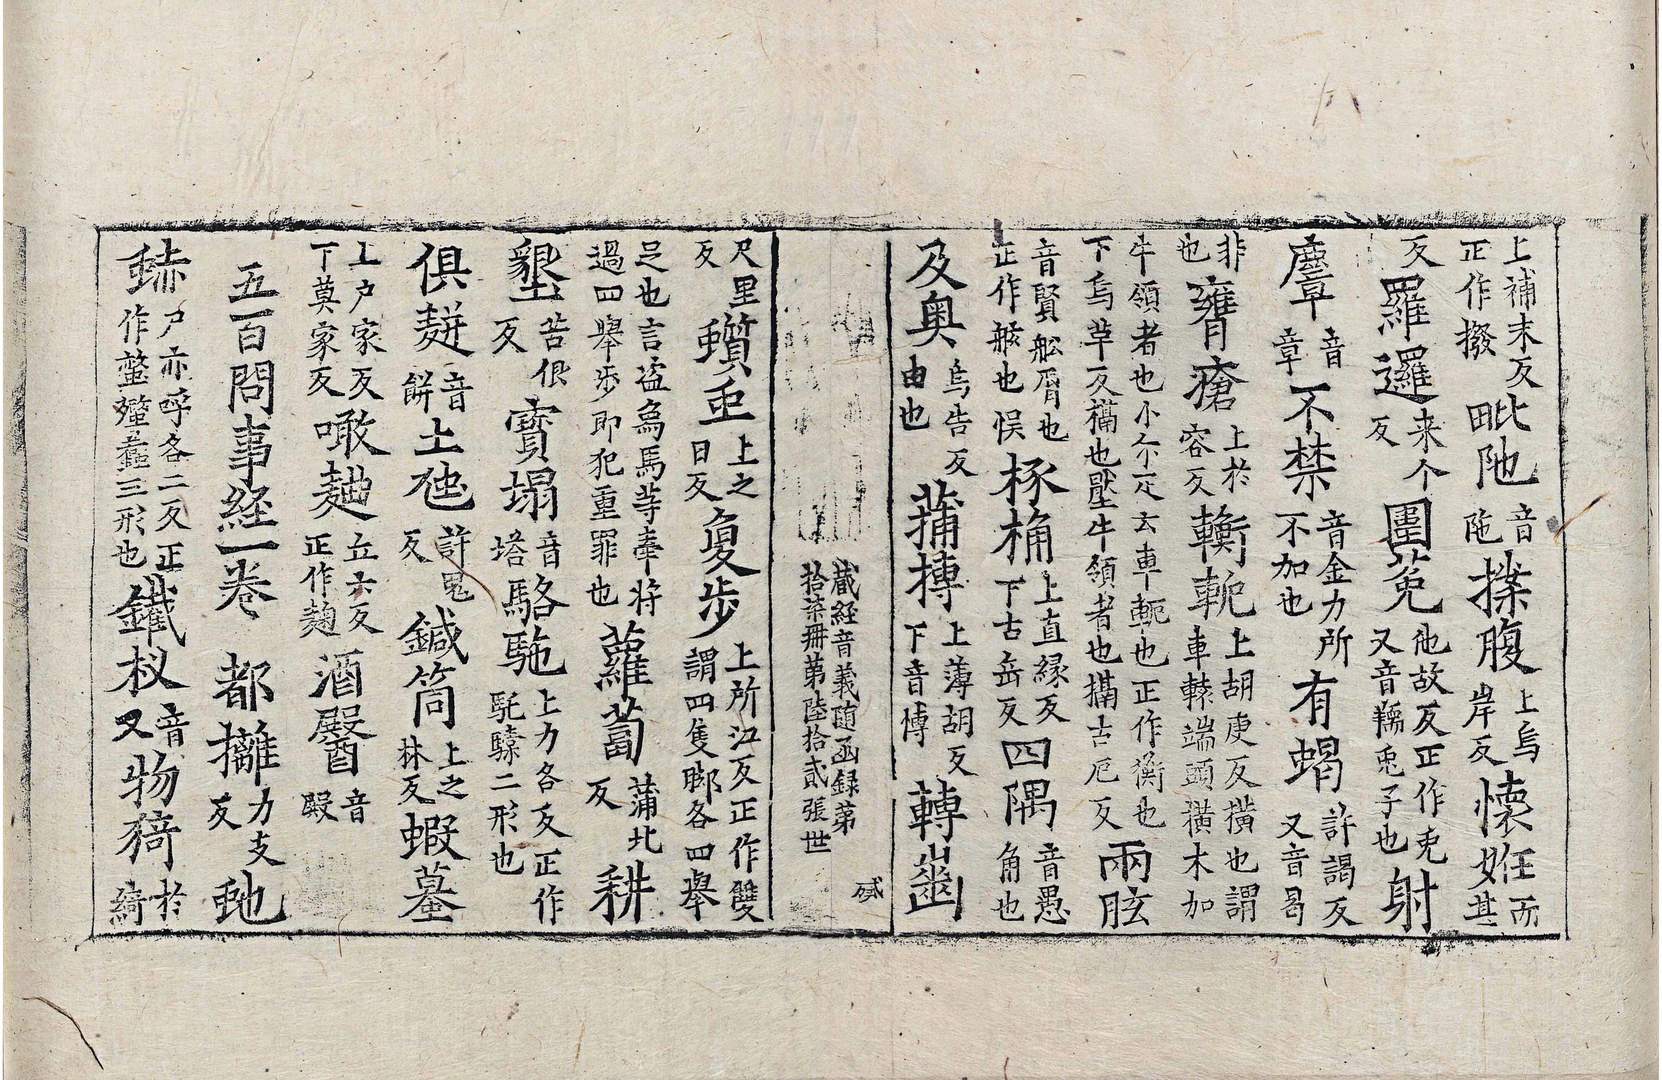 上補末反正作撥毗阤音陁揲腹上烏岸反懷妊而甚
反羅邏来个反圍菟他故反正作兎又音䨲兎子也射
麞音章不禁音金力所不加也有蝎許謁反又音曷
非也癰瘡上於容反轅軛上胡庚反横也謂車轅端頭横木加
牛領者也小尒疋云車軛也正作衡也下烏革反槅也壓牛領者也槅古厄反兩胘
音賢舩脣也正作舷也悮㭬桷上直縁反下古岳反四隅音愚角也
及奥烏告反由也蒱摶上薄胡反下音博轉齒
藏經音義随函録第拾柒冊第陸拾貳張世
尺里反蠀𡉏上之日反夐步上所江反正作雙謂四隻脚各四舉
足也言盗烏馬等牽將過四舉步即犯重罪也蘿蔔蒲北反耕
墾苦佷反寳塌音塔駱駞上力各反正作馲驝二形也
俱䴵音餅土虺許鬼反鍼筒上之林反蝦蟇
上户家反下莫家反噉麹丘六反正作麴酒醫音殿
五百問事経一卷 都攡力支反虵
蛓尸亦呼各二反正作螫𧐥蠚三形也鑯杈音叉物猗於綺